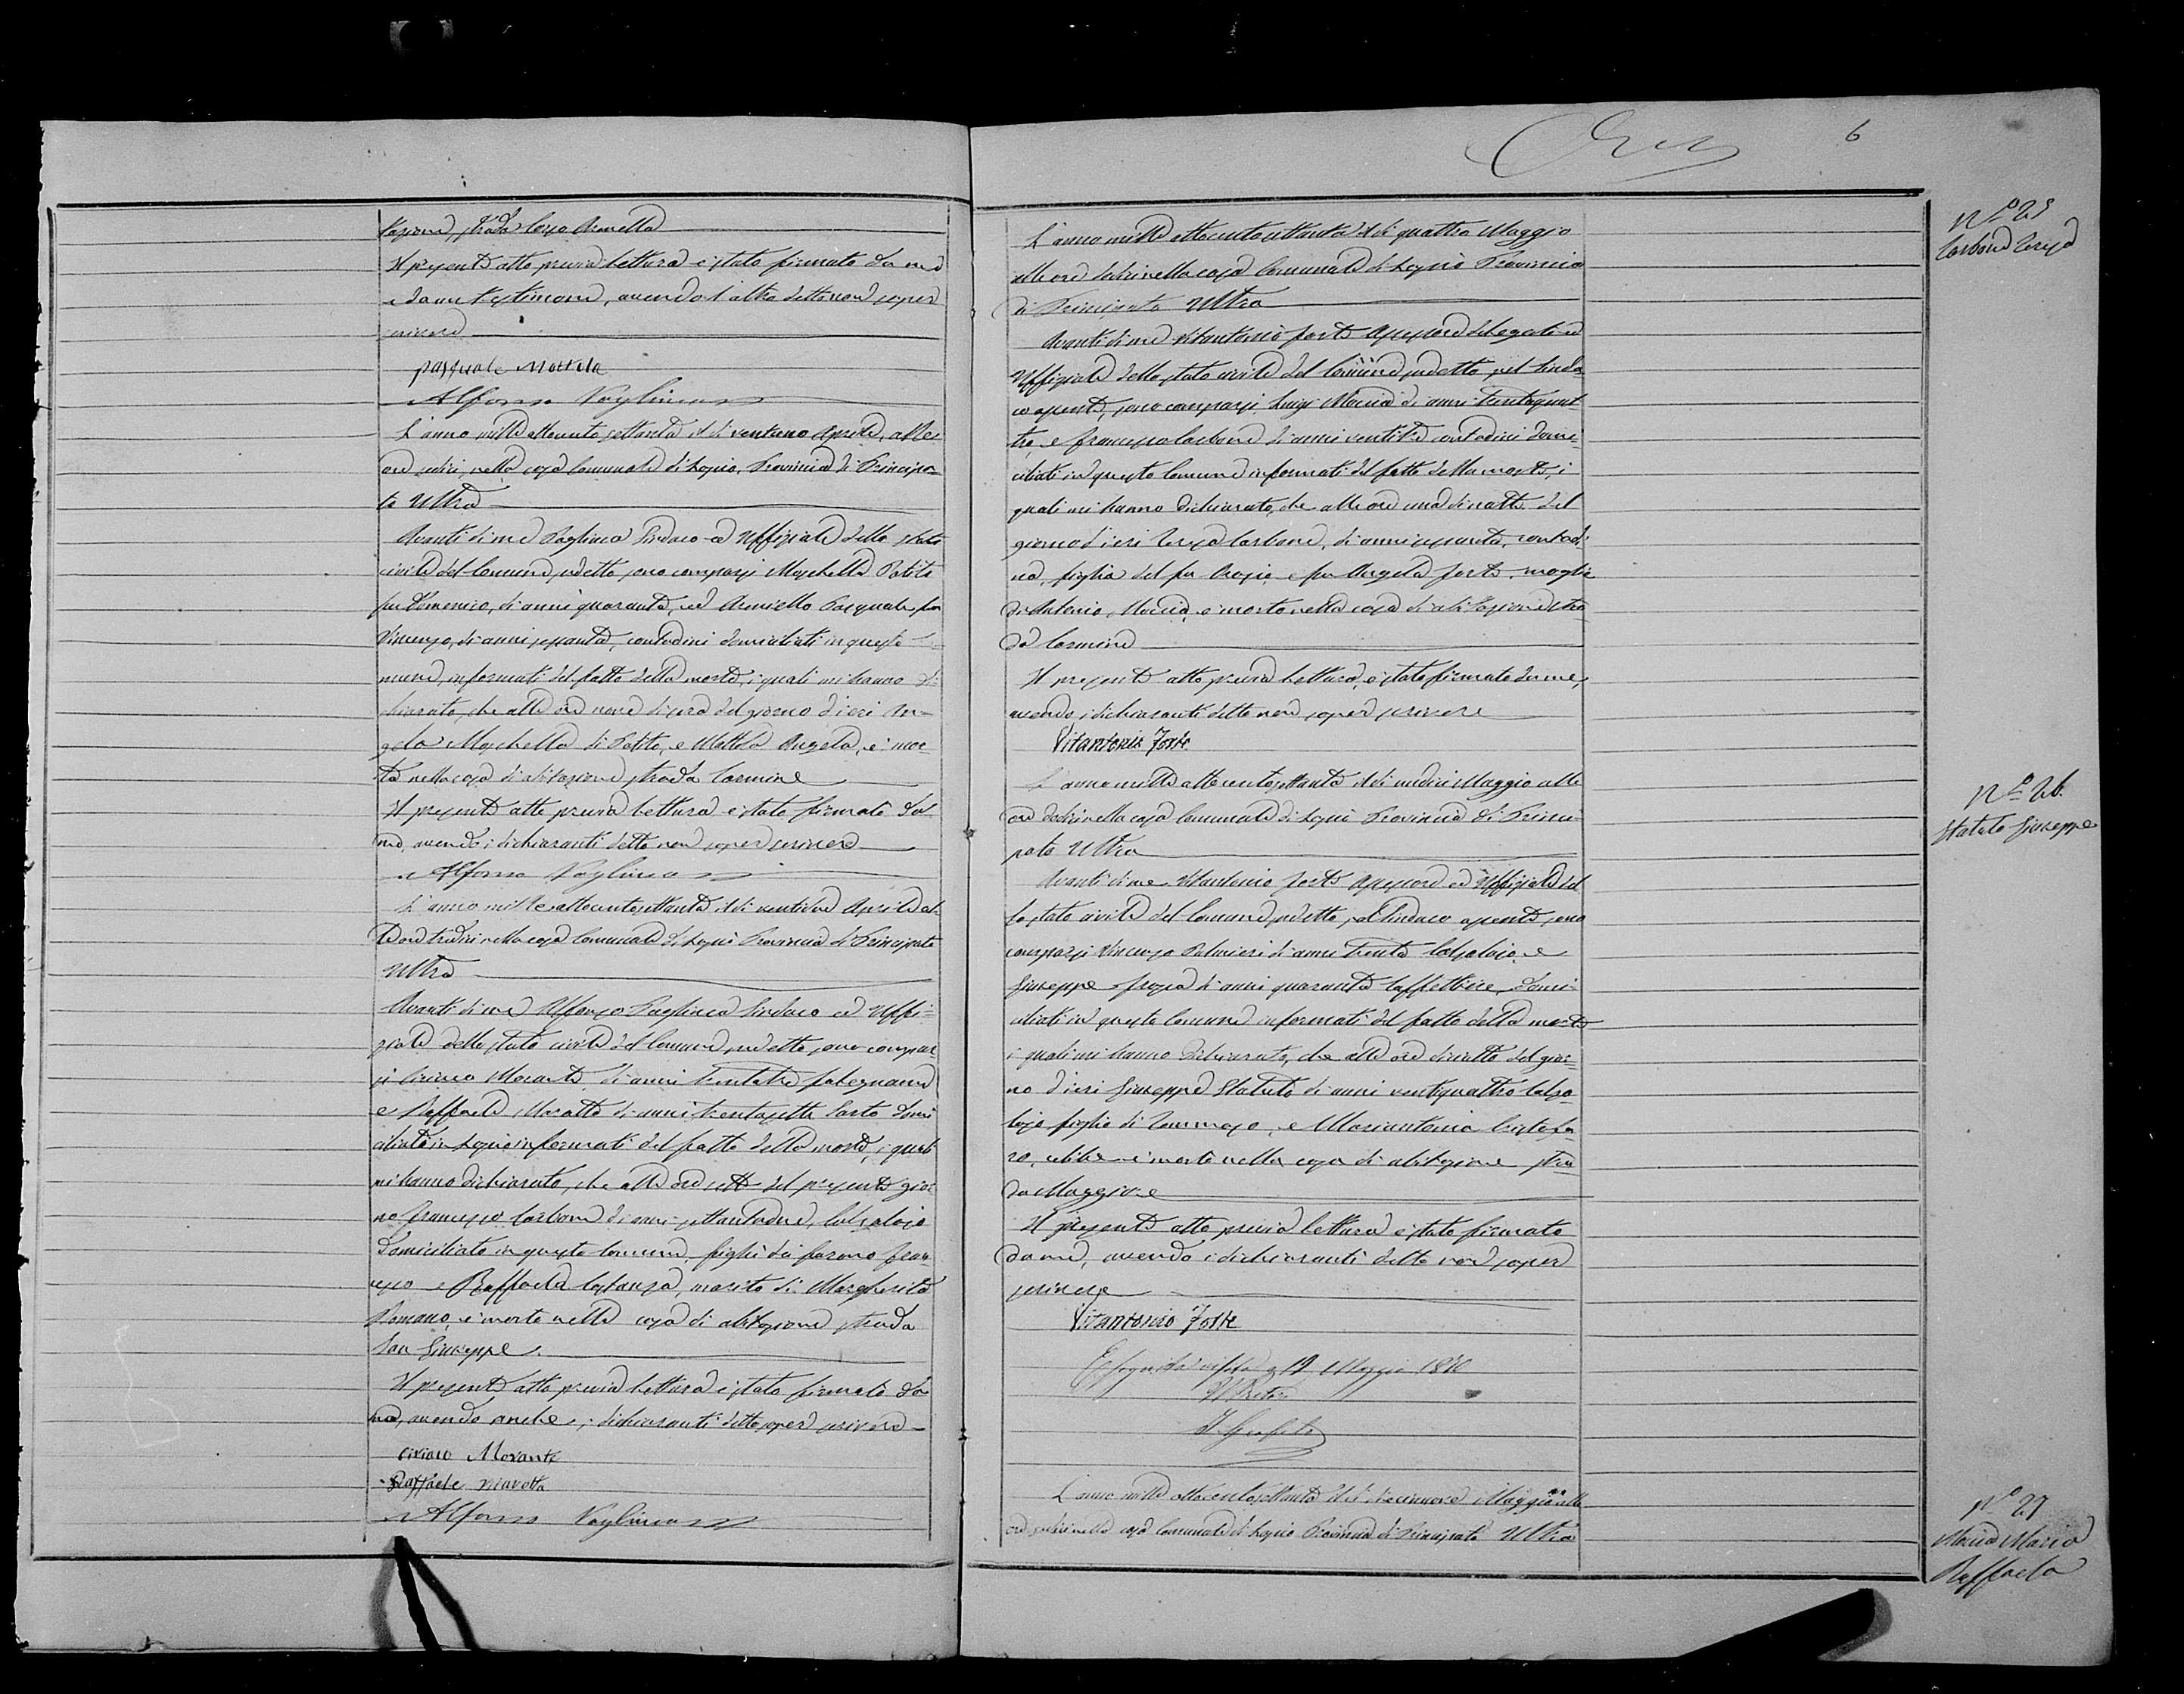 tazione, strada Corso Armella
Il presente atto previa lettura è stato firmato da me
e da un testimone, avendo l'altro detto non saper
scrivere
Pasquale Mottola
Alfonso Pagliuca
L'anno mille ottocento settanta il dì ventuno Aprile, alle
ore sedici nella casa Comunale di Lapio, Provincia di Principa-
to Ultra
Avanti di me Pagliuca Sindaco ed Uffiziale dello stato
civile del Comune sudetto sono comparsi Moschella Potito
fu Domenico, di anni quaranta, ed Armiello Pasquale fu
Vincenzo, di anni sessanta, contadini domiciliati in questo Co-
mune, informati del fatto della morte, i quali mi hanno di
chiarato, che alle ore nove di sera del giorno d'ieri An-
gela Moschella di Potito, e Mottola Angela, è mor
ta nella casa di abitazione strada Carmine
Il presente atto previa lettura è stato firmato da
me, avendo i dichiaranti detto non saper scrivere
Alfonso Pagliuca
L'anno mille ottocentosettanta il dì ventidue Aprile al-
le ore tredici nella casa Comunale di Lapio Provincia di Principato
Ultra
Avanti di me Alfonso Pagliuca Sindaco ed Uffi-
ziale dello stato civile del Comune sudetto sono compar
si Ciriaco Morante di anni trentatre falegname
e Raffaele Marotta di anni trentasette Sarto domi
ciliati in Lapio informati del fatto della morte, i quali
mi hanno dichiarato, che alle ore sette del presente gior
no Francesco Carbone di anni settantadue, Calzolaio
domiciliato in questo Comune, figlio dei furono Fran-
cesco e Raffaela Costanza, marito di Margherita
Romano, è morto nella casa di abitazione strada
San Giuseppe.
Il presente atto previa lettura è stato firmato da
me, avendo anche i dichiaranti detto saper scrivere
Ciriaco Morante
Raffaele Marotta
Alfonso Pagliuca
6
L'anno mille ottocentosettanta il dì quattro Maggio
alle ore sedici nella casa Comunale di Lapio Provincia
di Principato Ultra
Avanti di me Vitantonio Forte Assessore delegato ed
Uffiziale dello stato civile del Comune sudetto, pel Sinda-
co assente, sono comparsi Luigi Maccia di anni trentaquat-
tro, e Francesco Carbone di anni ventitre contadini domi
ciliati in questo Comune informati del fatto della morte, i
quali mi hanno dichiarato, che alle ore una di notte del
giorno d'ieri Teresa Carbone, di anni sessanta, contadi
na, figlia del fu Biagio, e fu Angela Forte, moglie
di Antonio Maccia, è morta nella casa di abitazione stra
da Carmine
Il presente atto previa lettura, è stato firmato da me,
avendo i dichiaranti detto non saper scrivere
Vitantonio Forte
L'anno mille ottocentosettanta il dì undici Maggio alle
ore dodici nella casa Comunale di Lapio Provincia di Princi
pato Ultra
Avanti di me Vitantonio Forte Assessore ed Uffiziale del
lo stato civile del Comune sudetto, pel Sindaco assente, sono
comparsi Vincenzo Palmieri di anni trenta Calzolaio, e
Giuseppe di anni quaranta Caffettiere, domi-
ciliati in questo Comune informati del fatto della morte
i quali mi hanno dichiarato, che alle ore di notte del gior
no d'ieri Giuseppe Statuto di anni ventiquattro Calzo
laio figlio di Tommaso, e Mariantonia Cristofa
ro, celibe è morto nella casa di abitazione stra
da Maggiore
Il presente atto previa lettura è stato firmato
da me, avendo i dichiaranti detto non saper
scrivere
Vitantonio Forte
19 Maggio 1870
Il Pretore
L'anno mille ottocentosettanta il dì diecinnove Maggio alle
ore sedici nella casa Comunale di Lapio Provincia di Principato Ultra
N.° 25
Carbone Teresa
N.° 26.
Statuto Giuseppe
N.° 27
Maccia Maria
Raffaela